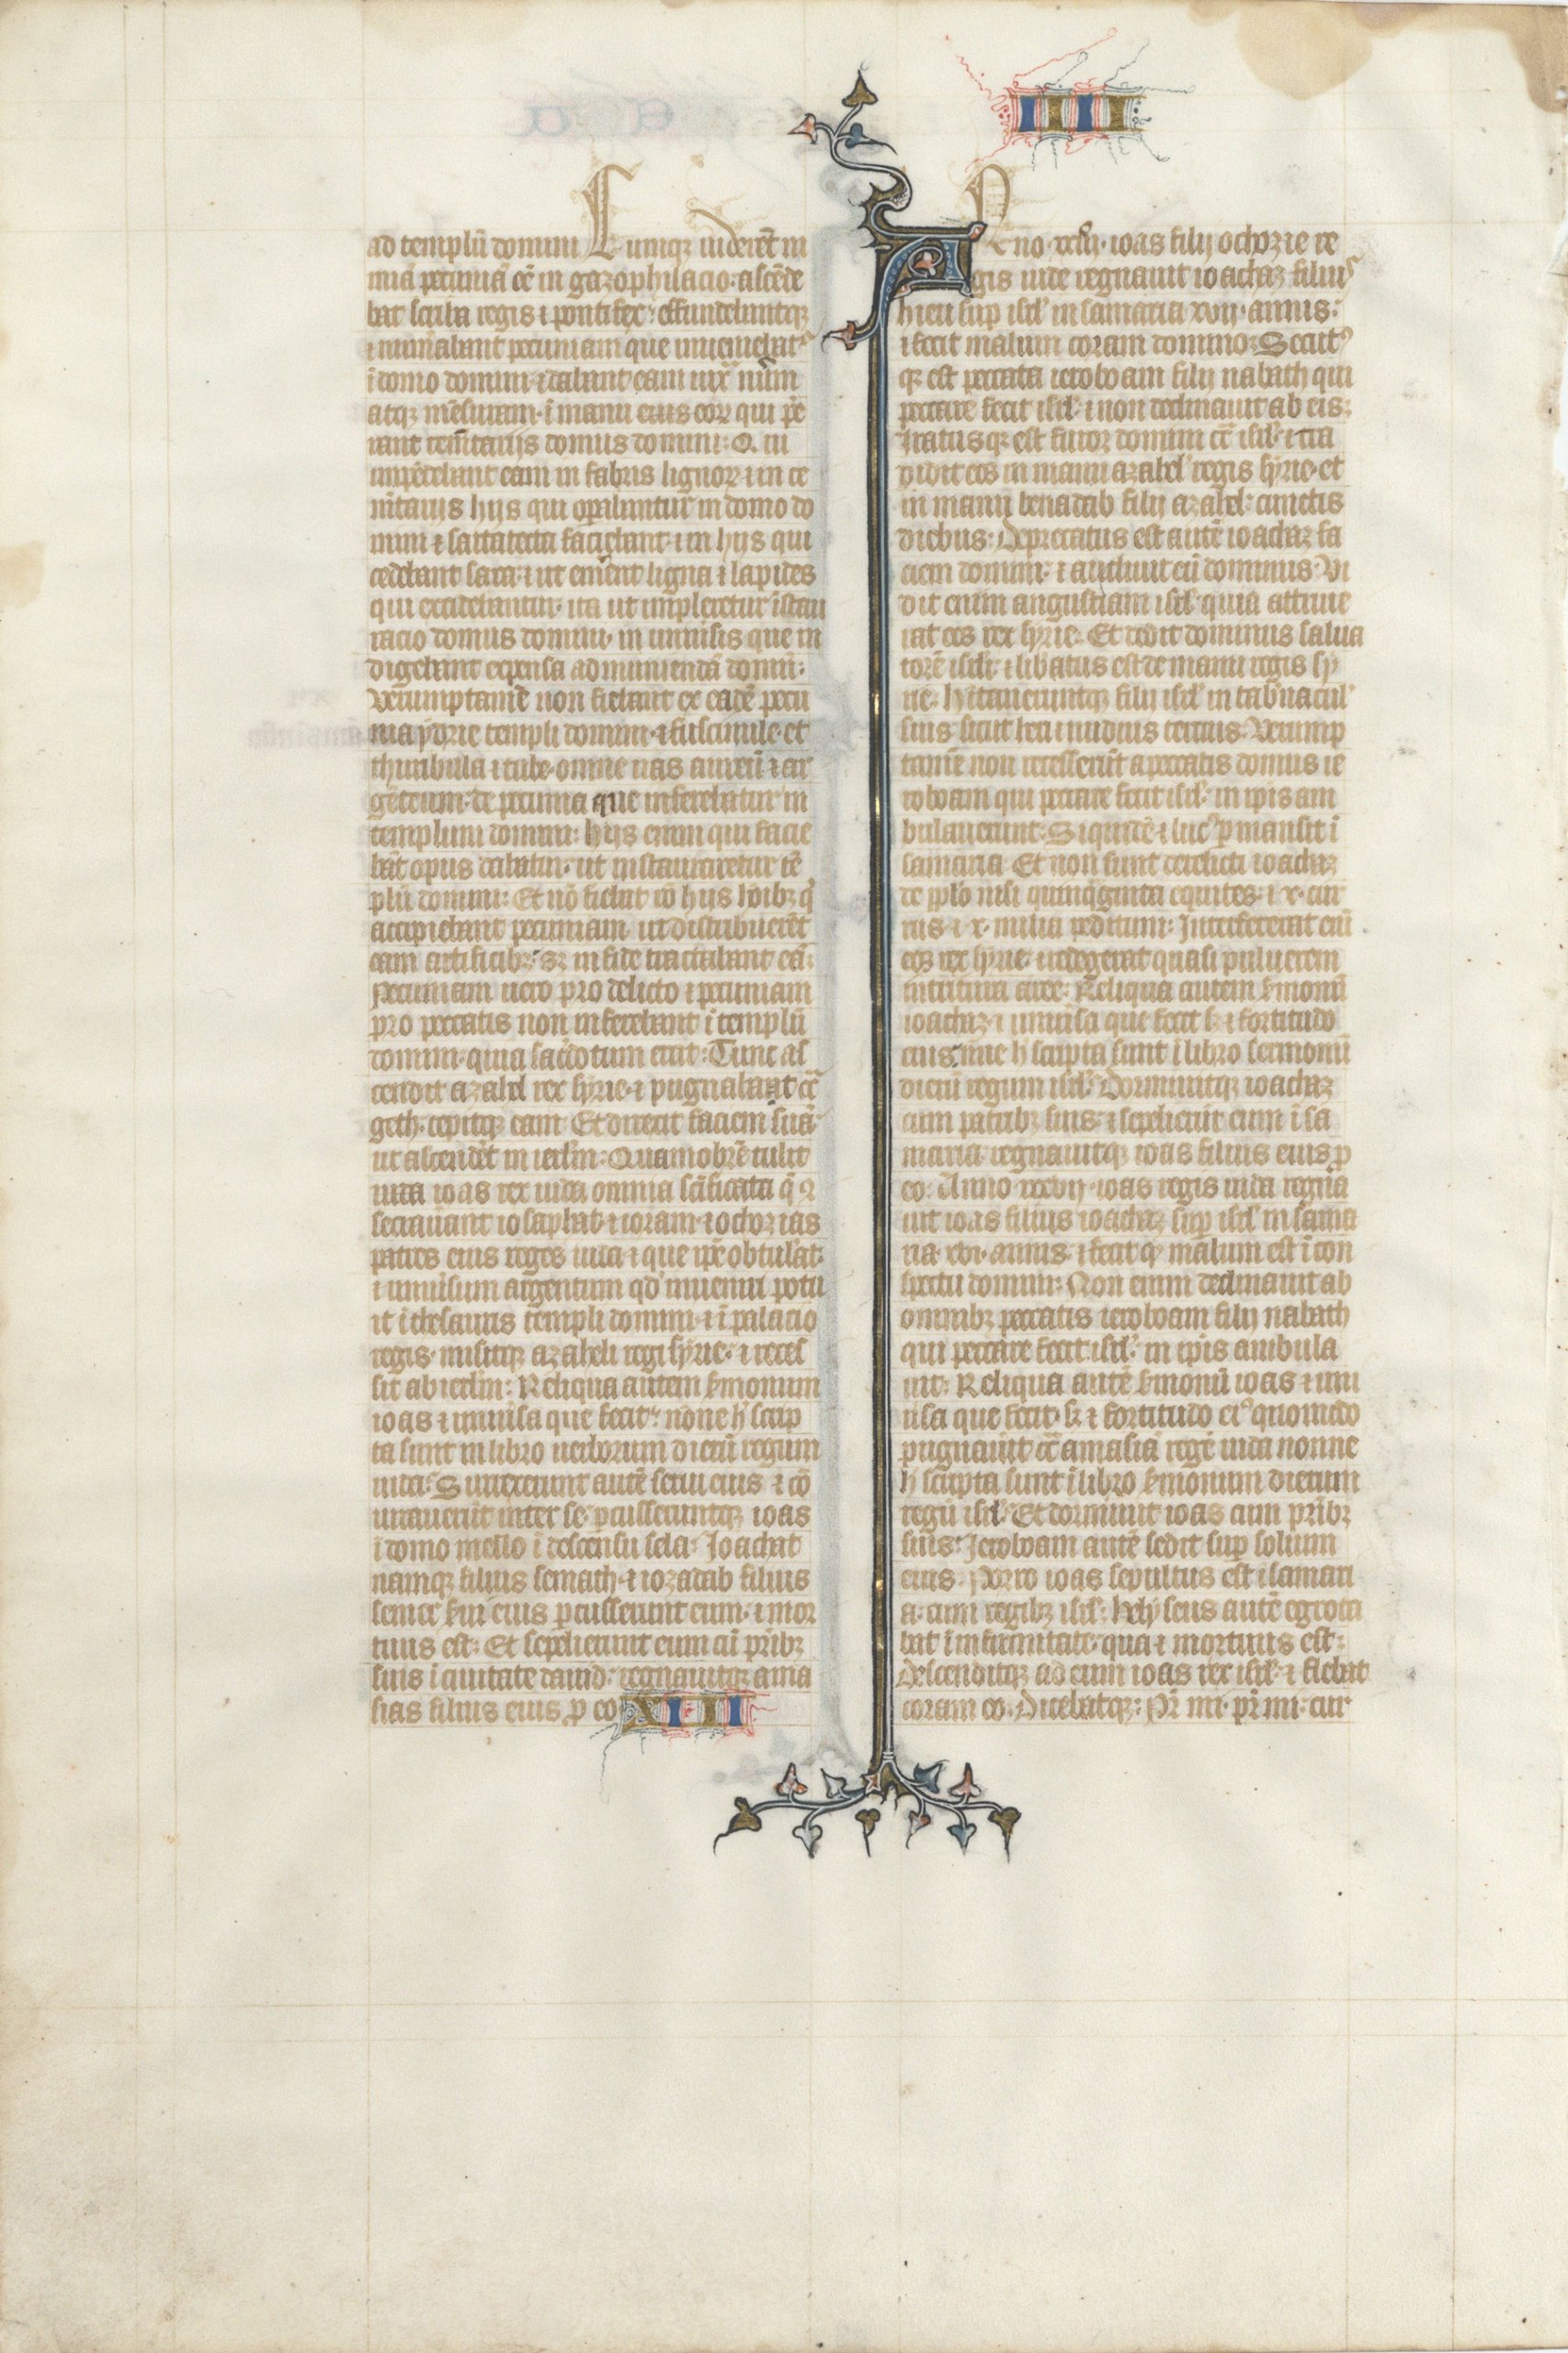 IIII
ad templū domini Cumq; uiderēt ni
miā pecuniā eē in gazophilacio· ascēde
bat scriba regis ⁊ pontifex: effundebuntq;
⁊ nūmabant pecuniam que inueniebatᷣ
ī domo domini· ⁊ dabant eam iuxͣ nūm
atq; mēsuram· ī manu eius eoꝝ qui p̄e
rant cem̄tarijs domus domini: Q ui
impēdebant eam in fabris lignoꝝ ⁊ in ce
m̄tarijs hijs qui oꝑabuntur in domo do
mini ⁊ sartatecta faciebant· ⁊ in hijs qui
cedebant saxa· ⁊ ut emēnt ligna ⁊ lapides
qui excidebantur· ita ut impleretur īstau
racio domus domini· in uniūsis que in
digebant expensa ad muniendā domū:
Verumptamē non fiebant ex eadē pecu
nia ydrie templi domini· ⁊ fuscinule· et
thuribula ⁊ tube· omne uas aureū ⁊ ar
gēteum· de pecunia que inferebatur in
templum domini: hijs enim qui facie
bāt opus dabatur· ut instauraretur tē
plū domini: Et nō fiebat rō hijs hōib; q͛
accipiebant pecuniam ut distribuerēt
eam artificib;· s; in fide tractabant eā:
Pecuniam uero pro delicto ⁊ pecuniam
pro peccatis non inferebant ī templū
domini· quia sac̄dotum erat: Tunc as
cendit azahel rex syrie· ⁊ pugnabat cͣ
geth· cepitq; eam Et direxit faciem suā
ut ascendēt in ierlm̄: Quamobrē tulit
iuda ioas rex iuda omnia scīficata q̄ ꝯ
secrauānt iosaphat· ⁊ ioram· ⁊ ochozias
patres eius reges iuda· ⁊ que ip̄e obtulāt·
⁊ uniūsum argentum qd̄ inueniri potu
it ī thesauris templi domini· ⁊ ī palacio
regis· misitq; azaheli regi syrie· ⁊ reces
sit ab ierlm̄: Reliqua autem s̄monum
ioas ⁊ uniūsa que fecit· nōne h̄ scrip
ta sunt in libro uerborum dierū regum
iuda: Surrexerunt autē serui eius ⁊ cō
iurauerūt inter se· ꝑcusseruntq; ioas
ī domo mello ī descensu sela: Ioachat
namq; filius semath· ⁊ iozadab filius
somer s̄ui eius ꝑcusserunt eum· ⁊ mor
tuus est: Et sepelierunt eum cū p̄rib;
suis ī ciuitate dauid: regnauitq; ama
sias filius eius ꝓ eo XIII
Anno xxiij· ioas filij ochozie re
gis iude regnauit ioachaz filiuˢ
hieu suꝑ isrl̄ in samaria xvij· annis:
⁊ fecit malum coram domino: Secutꝰ
q; est peccata ieroboam filij nabath qui
peccare fecit isrl̄· ⁊ non declinauit ab eis:
Iratusq; est furor domini cͣ isrl̄· ⁊ tra
didit eos in manu azahel regis syrie· et
in manu benadab filij azahel: cunctis
diebus: Deprecatus est autē ioachaz fa
ciem domini· ⁊ audiuit eū dominus· Vi
dit enim angustiam isrl̄· quia attriue
rat eos rex syrie: Et dedit dominus salua
torē isrl̄i· ⁊ libatus est de manu regis sy
rie· Hītaueruntq; filij isrl̄ in tab̄nacul̄
suis sicut heri ⁊ nudius tercius: Verump
tamē non recesserūt a peccatis domus ie
roboam qui peccare fecit isrl̄· in ip̄is am
bulauerunt: Siquidē ⁊ lucꝰ ꝑmansit ī
samaria Et non sunt derelicti ioachaz
de pp̄lo nisi quinq̄ginta equites· ⁊ x· cur
rus· ⁊ x· milia peditum: Interfecerat eni
eos rex syrie· ⁊ redegerat quasi puluerem
intritura aree: Reliqua autem s̄monū
ioachaz· ⁊ uniūsa que fecit s; ⁊ fortitudo
eius· nne h̄ scripta sunt ī libro sermonū
dierū regum isrl̄: Dormiuitq; ioachaz
cum patrib; suis· ⁊ sepelierūt eum ī sa
maria· regnauitq; ioas filius eius ꝓ
eo: Anno xxxvij· ioas regis iuda regna
uit ioas filius ioachaz suꝑ isrl̄ in sama
ria· xvi· annis ⁊ fecit q̄ malum est ī con
spectu domini: Non enim declinauit ab
omnib; peccatis ieroboam filij nabath
qui peccare fecit isrl̄: in ip̄is ambula
uit: Reliqua autē s̄monū ioas ⁊ uni
ūsa que fecit· s; ⁊ fortitudo eiꝰ quomodo
pugnauit cͣ amasiā regē iuda nonne
h̄ scripta sunt ī libro s̄monum dierum
regū isrl̄: Et dormiuit ioas cum p̄rib;
suis: Ieroboam autē sedit suꝑ solium
eius· Porro ioas sepultus est ī samari
a· cum regib; isrl̄: Helyseus autē egrota
bat ī infirmitate· qua ⁊ mortuus est:
Descenditq; ad eum ioas rex isrl̄· ⁊ flebat
coram eo· Dicebatq;: Pr̄ mi· pr̄ mi· cur